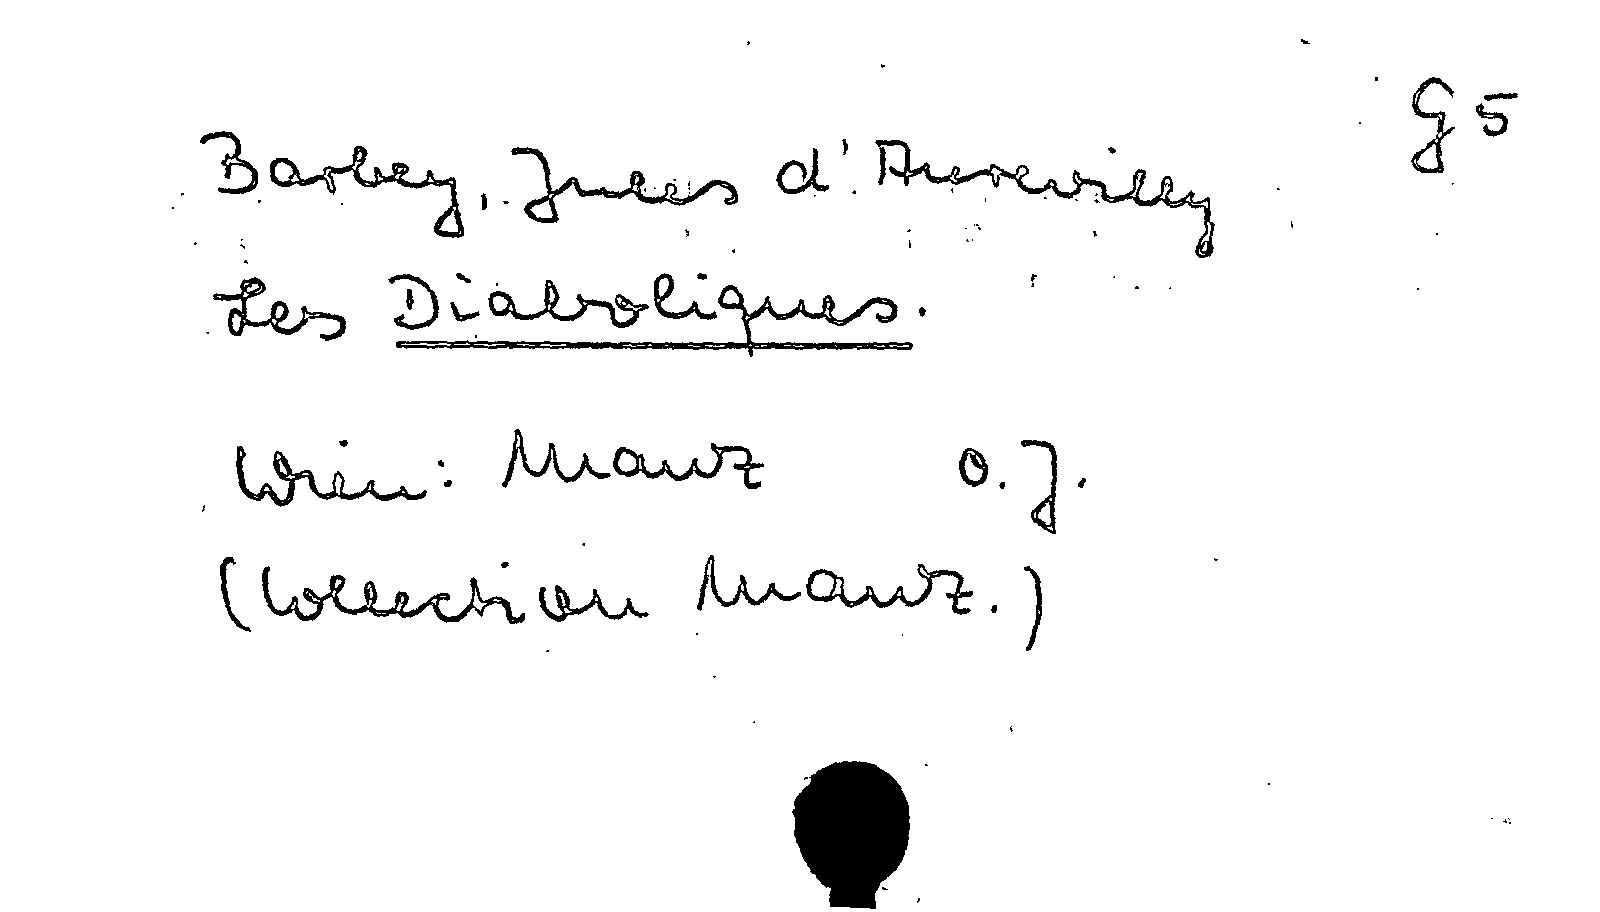 G 5
Barbey, Jules d'Aurevilly
Les Diaboliques.
Wien: Manz o.J.
(Collection Manz.)